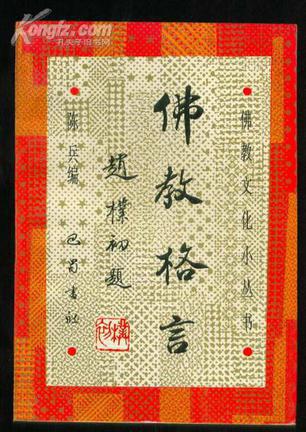 Kongfz.com
孔夫子旧书网
佛教文化小丛书
佛教格言
趙樸初題
陈兵编
巴蜀書社